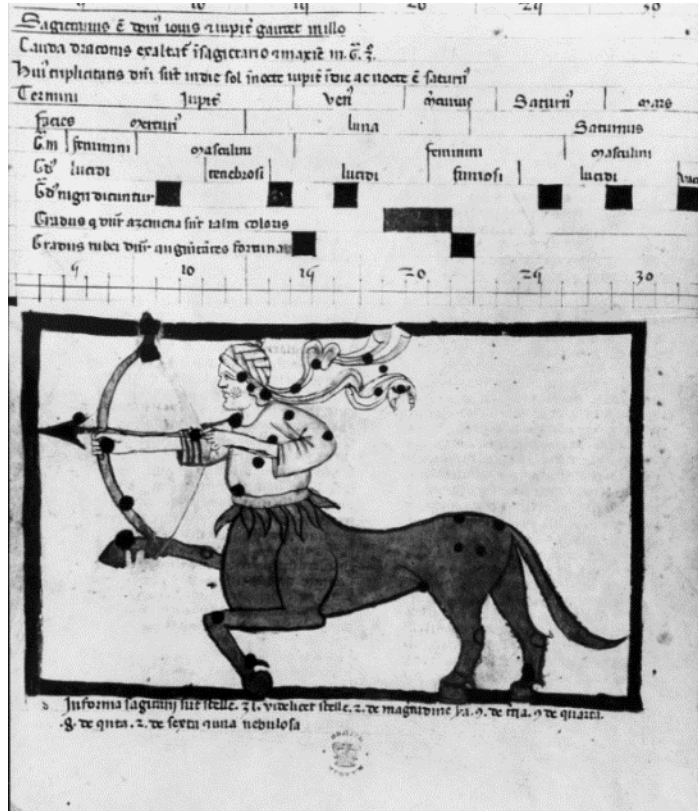 5 10 15 20 25 30
Sagittarius ē domꝰ iouis ⁊ iupit̄ gaudet in illo
Cauda draconis exaltat̄ ī sagittario ⁊ maxīe in. G̅. 3.
Huiꝰ triplicitatis dn̄i sūt in die sol ī nocte iupit̄ ī die ac nocte ē saturnꝰ
Termini iupit̄ venꝰ m̄curius Saturnꝰ mars
facies mercuriꝰ luna Saturnus
G̅. m feminini masculini feminini masculini
G̅dꝰ lucidi tenebrosi lucidi fumosi lucidi
G̅dꝰ nigri dicuntur
Gradus q dn̄r azemena sūt talis coloris
Gradus rubei dn̄r augm̄tātes fortunā
5 10 15 20 25 30
In forma sagittarii sūt stelle. 31. videlicet stelle. 2. de magnitudine 9. de 9. de quarta.
8. de qnta. 2. de sexta ⁊ una nebulosa